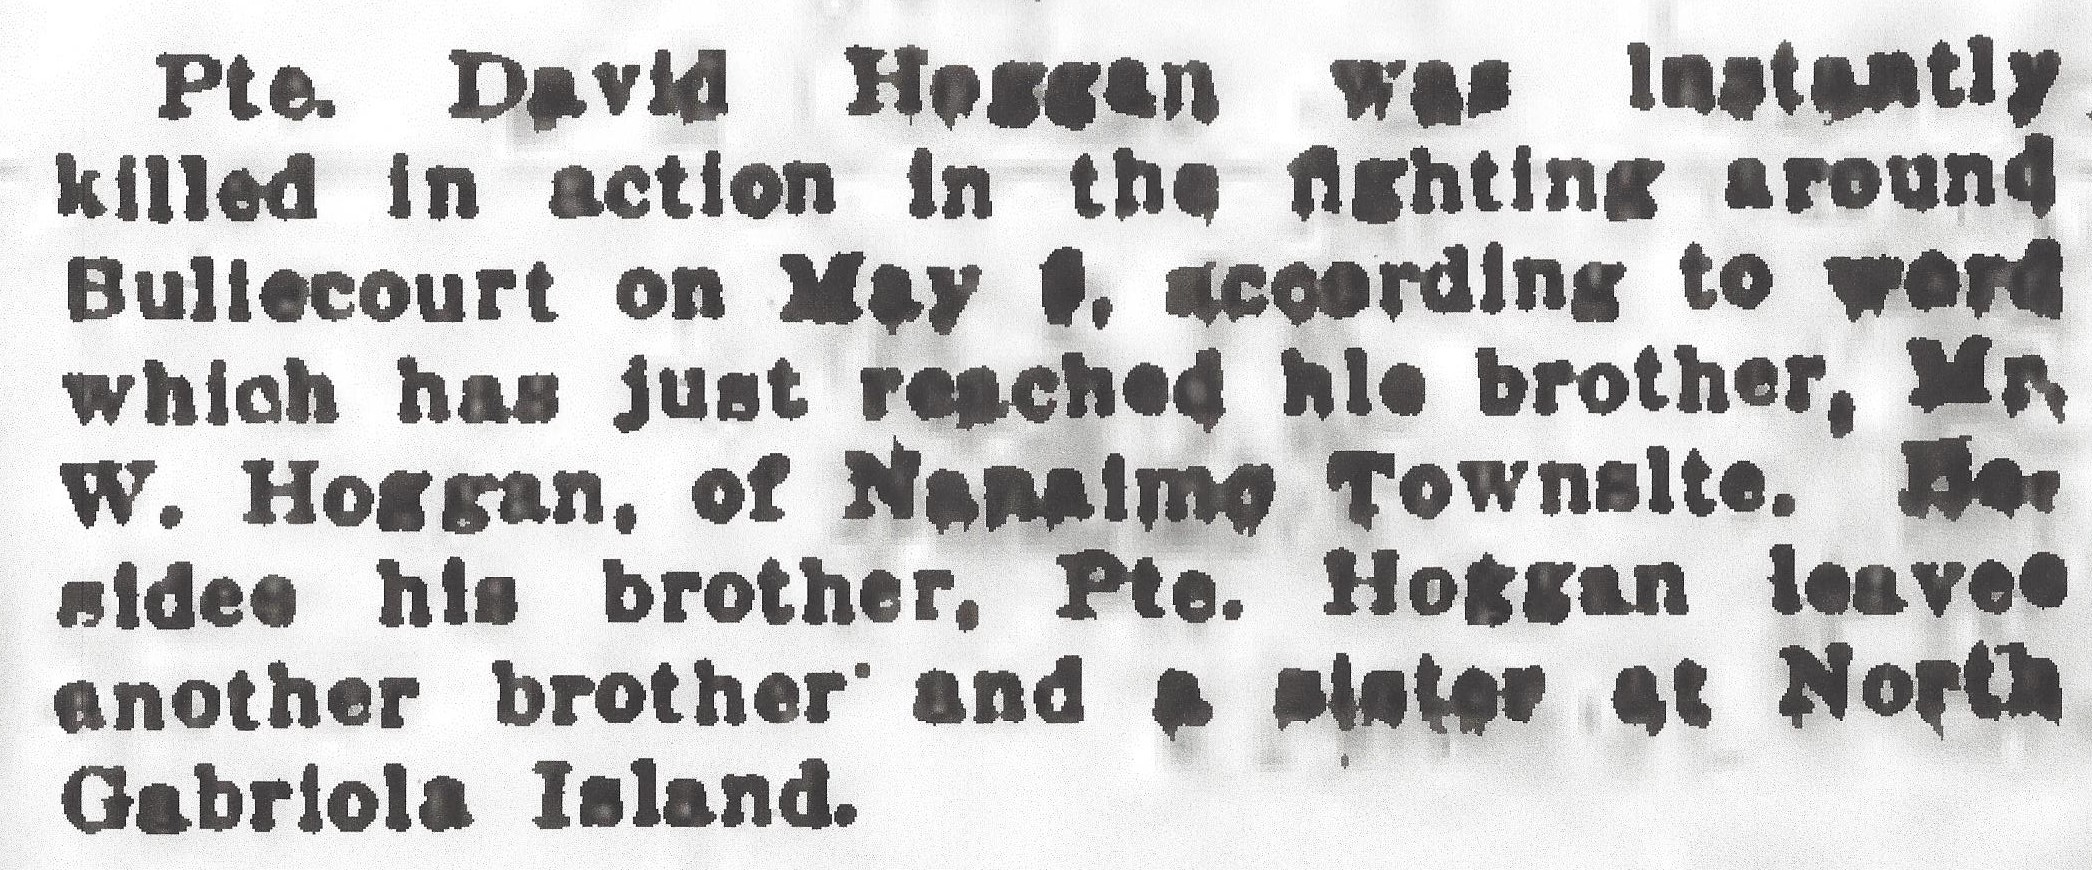 Pte. David Hoggan was instantly
killed in action in the fighting around
Bullecourt on May according to word
which has just reached his brother, Mr.
W. Hoggan, of Nanaimo Townsite. Be-
sides his brother, Pte. Hoggan leaves
another brother and a sister at North
Gabriola Island.